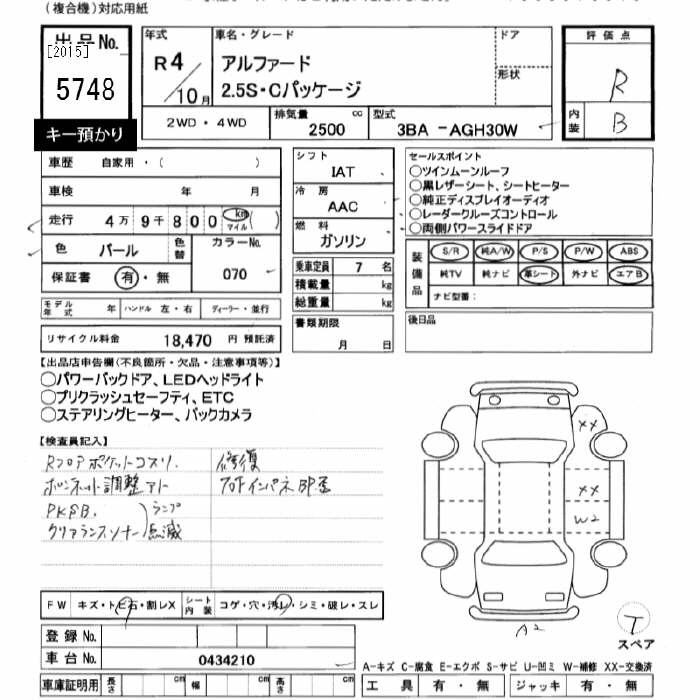 (複合機)対応用紙
出品No.
[2015]
5748
キー預かり
年式
R4/10月
車名・グレード
アルファード
2.5S・Cパッケージ
ドア
形状
評価点
R
内装
B
2WD・4WD
排気量
cc
2500
型式
3BA -AGH30W
車歴 自家用・( )
車検 年 月
走行 4万9千800 km マイル ( )
色 パール 色替 カラーNo. 070
保証書 有・無
シフト
IAT
冷房
AAC
燃料
ガソリン
乗車定員 7 名
積載量 kg
総重量 kg
書類期限
月 日
セールスポイント
○ツインムーンルーフ
○黒レザーシート、シートヒーター
○純正ディスプレイオーディオ
○レーダークルーズコントロール
○両側パワースライドドア
装備品
S/R 純A/W P/S P/W ABS
純TV 純ナビ 革シート 外ナビ エアB
ナビ型番:
後日品
モデル年式 年 ハンドル 左・右 ディーラー・並行
リサイクル料金 18,470 円 預託済
【出品店申告欄(不良箇所・欠品・注意事項等)】
○パワーバックドア、LEDヘッドライト
○プリクラッシュセーフティ、ETC
○ステアリングヒーター、バックカメラ
【検査員記入】
Rフロアポケットコスリ.
ボンネット調整アト
PKSB.
クリアランスソナー
ランプ
点滅
修復
フロアトインパネ部歪
XX
XX
W2
A2
T
スペア
FW キズ・トビ石・割レX シート内装 コゲ・穴・汚レ・シミ・破レ・スレ
登録No.
車台No. 0434210
A-キズ C-腐食 E-エクボ S-サビ U-凹ミ W-補修 XX-交換済
車庫証明用 長さ cm 幅 cm 高さ cm
工具 有・無 ジャッキ 有・無